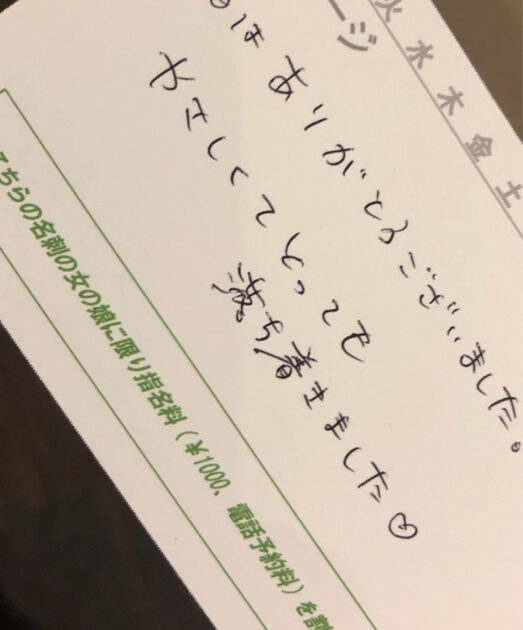 火 水 木 金 土
ージ
は ありがとうございました。
やさしくてとっても
落ち着きました♡
こちらの名刺の女の娘に限り指名料（￥1000、電話予約料）を割